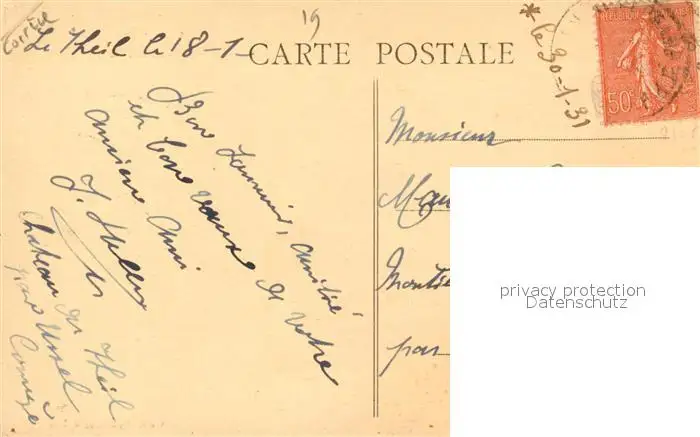 19
Le Theil le 18-1-
CARTE POSTALE
* le 30=1-31
RÉPUBLIQUE FRANÇAISE
50c
Bon Souvenir, amitié
et bons vœux de votre
ancienne amie
Château du Theil
par Ussel
Corrèze
Monsieur
par
privacy protection
Datenschutz